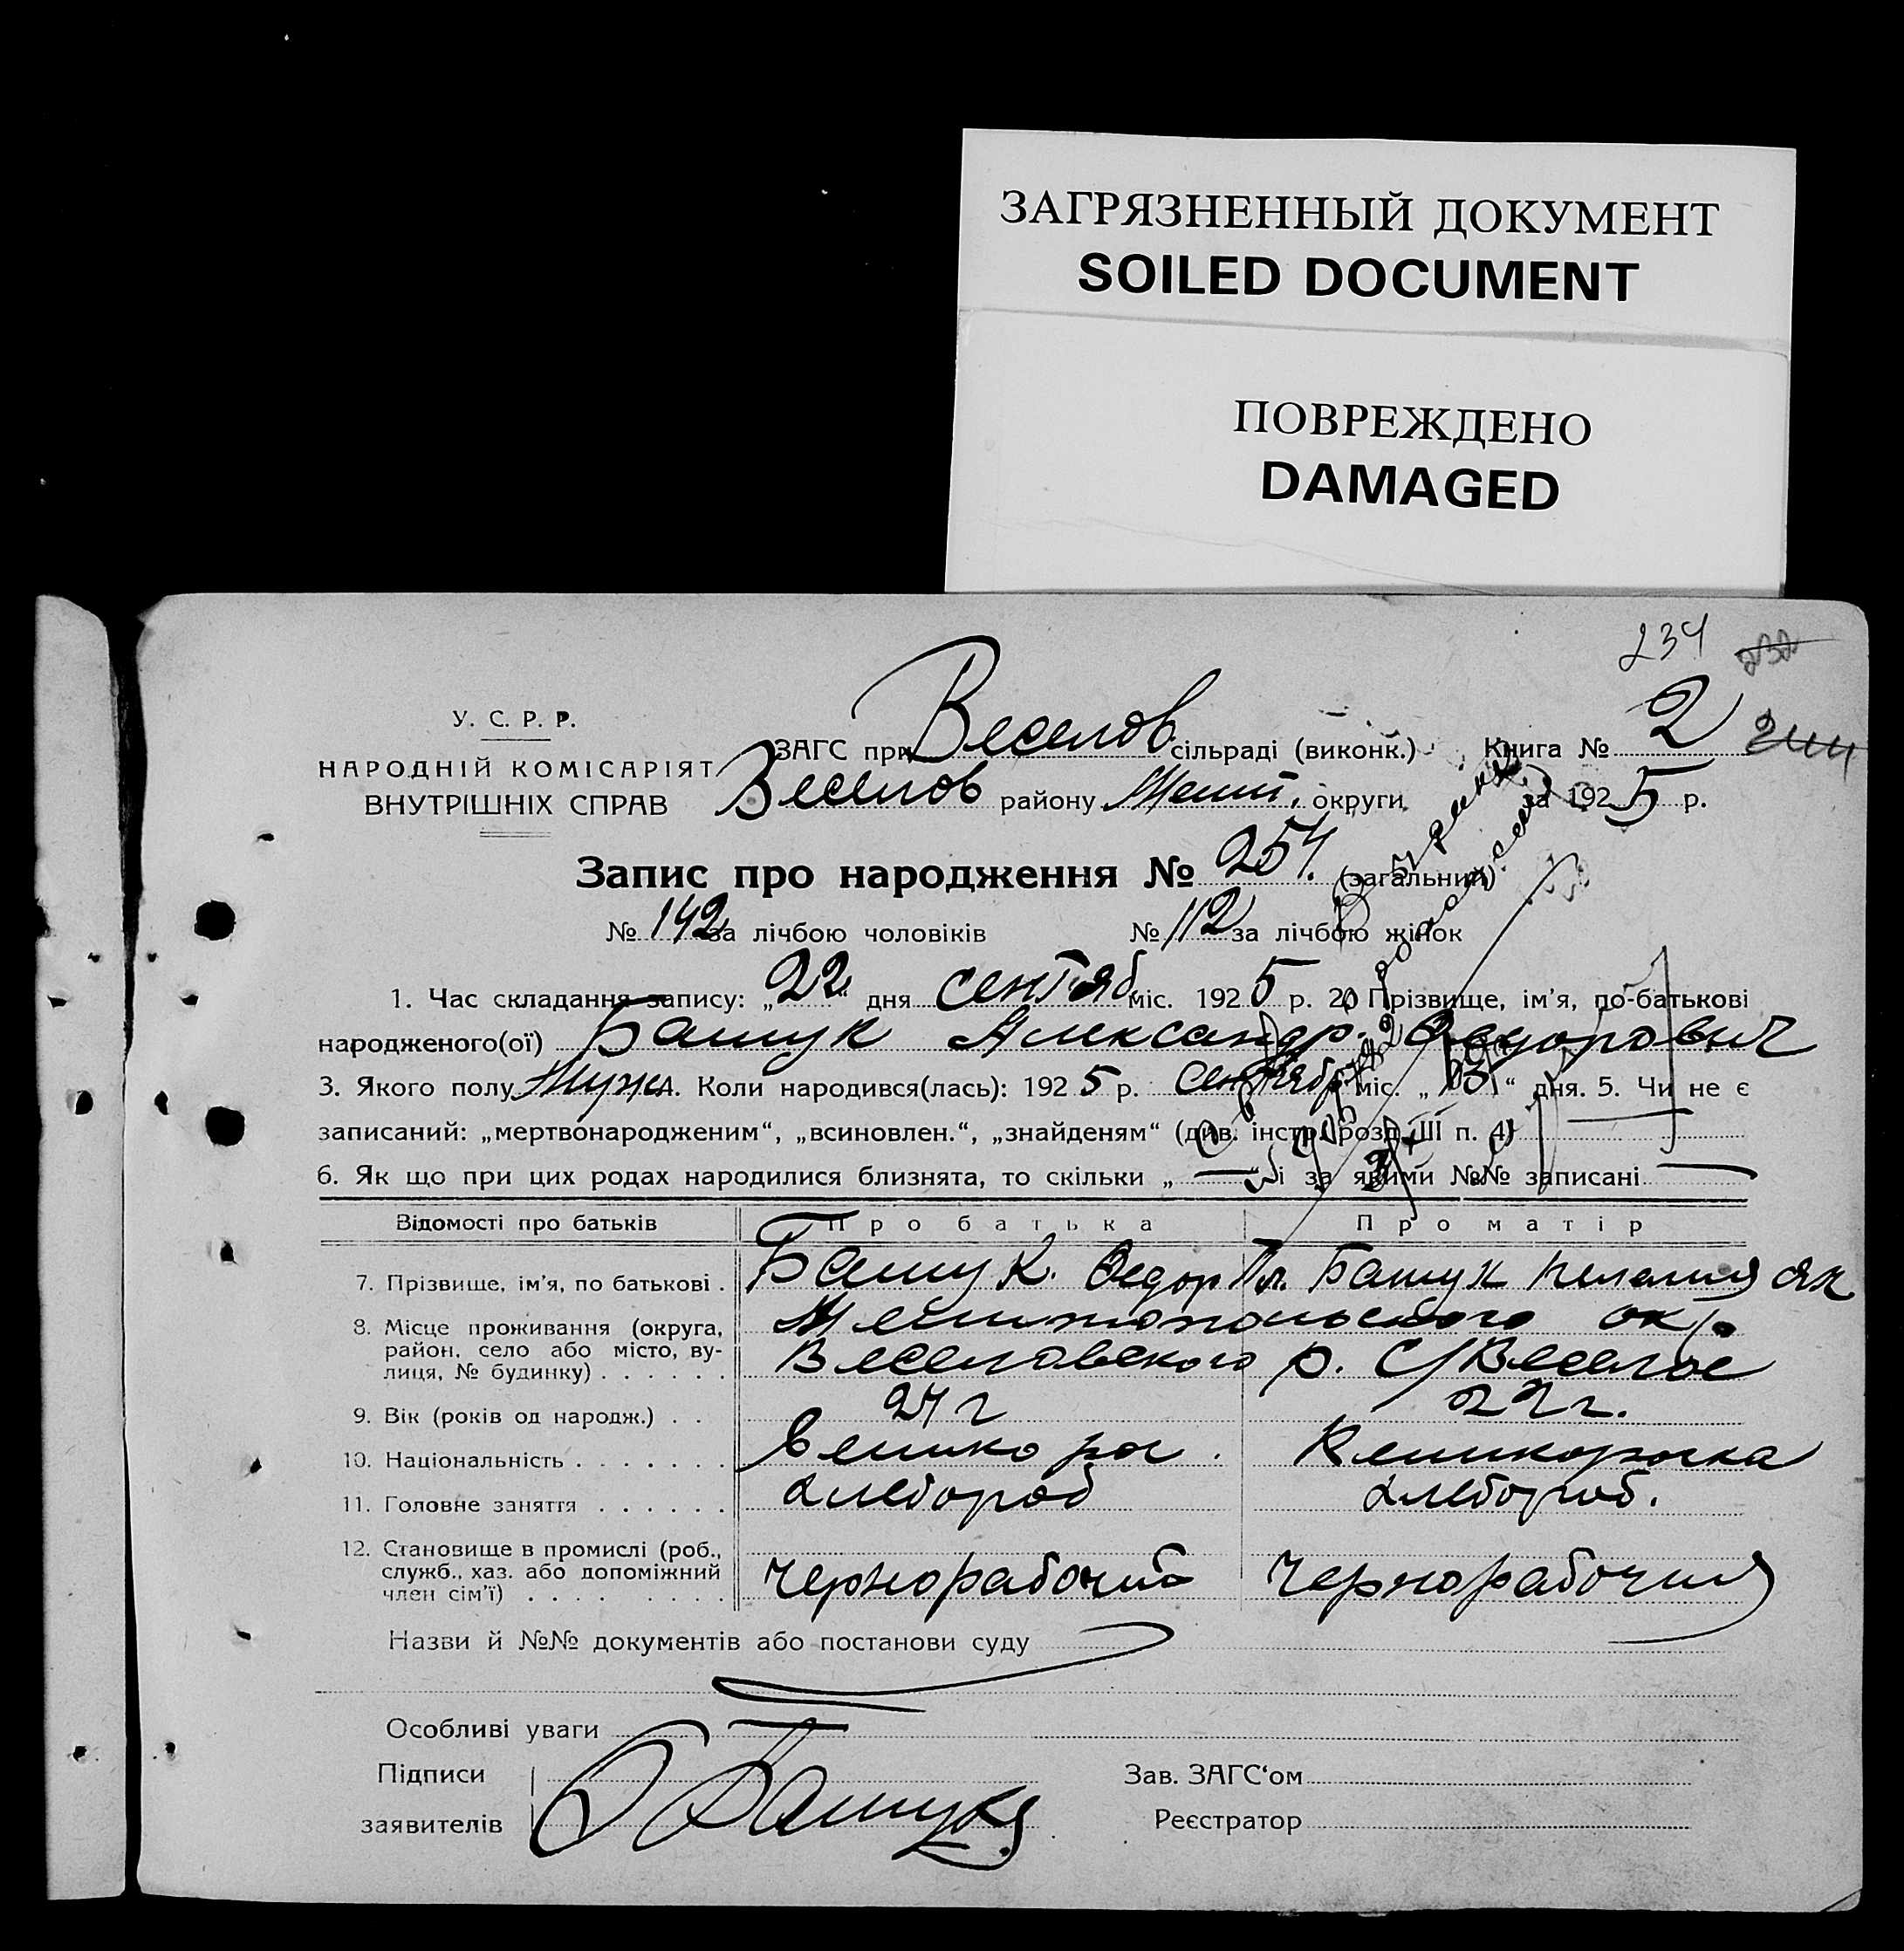 ЗАГРЯЗНЕННЫЙ ДОКУМЕНТ
SOILED DOCUMENT
ПОВРЕЖДЕНО
DAMAGED
234
У. С. Р. Р.
НАРОДНІЙ КОМІСАРІЯТ
ВНУТРІШНІХ СПРАВ
ЗАГС при Веселов сільраді (виконк.) Книга № 2
Веселов району Мелит. округи за 1925 р.
Запис про народження № 254. (загальний)
№ 142 за лічбою чоловіків № 112 за лічбою жінок
1. Час складання запису: „22“ дня сентяб міс. 1925 р. 2) Прізвище, ім’я, по-батькові
народженого(ої) Башук Александр Федорович
3. Якого полу Муж 4. Коли народився(лась): 1925 р. Сентябр міс. „13“ дня. 5. Чи не є
записаний: „мертвонародженим“, „всиновлен.“, „знайденям“ (див. інстр. розд. III п. 4)
6. Як що при цих родах народилися близнята, то скільки „ — “ і за якими №№ записані —
Відомості про батьків Про батька Про матір
7. Прізвище, ім’я, по батькові . Башук Федор Пл. Башук Пелагия як
8. Місце проживання (округа, район, село або місто, вулиця, № будинку) . . . . . . Мелитопольского окр
Веселовского р. С/Веселое
9. Вік (років од народж.) . . 24 г 22 г.
10. Національність . . . . . . . Великорос . Великороска
11. Головне заняття . . . . . . хлебороб хлебороб.
12. Становище в промислі (роб., служб., хаз. або допоміжний член сім’ї) . . . . . . . . чернорабочий чернорабочий
Назви й №№ документів або постанови суду
Особливі уваги
Підписи Зав. ЗАГС‘ом
заявителів Башук Реєстратор